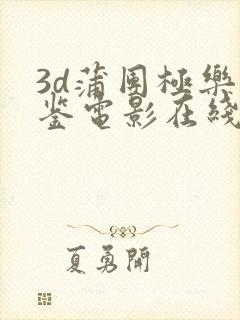 3d蒲團極樂
鉴電影在綫
夏勇開